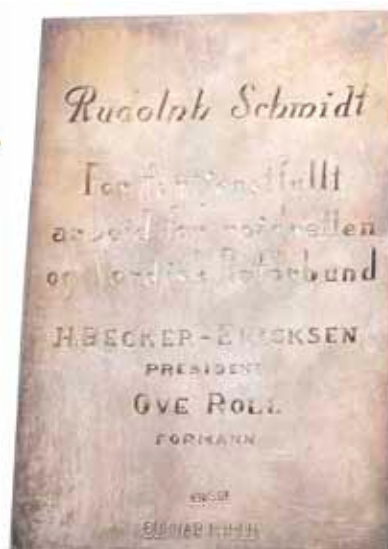 Rudolph Schmidt
For fortjenstfullt
arbeid for
og Nordisk Rotorbund
H. BECKER-ERICKSEN
PRESIDENT
OVE ROLL
FORMANN